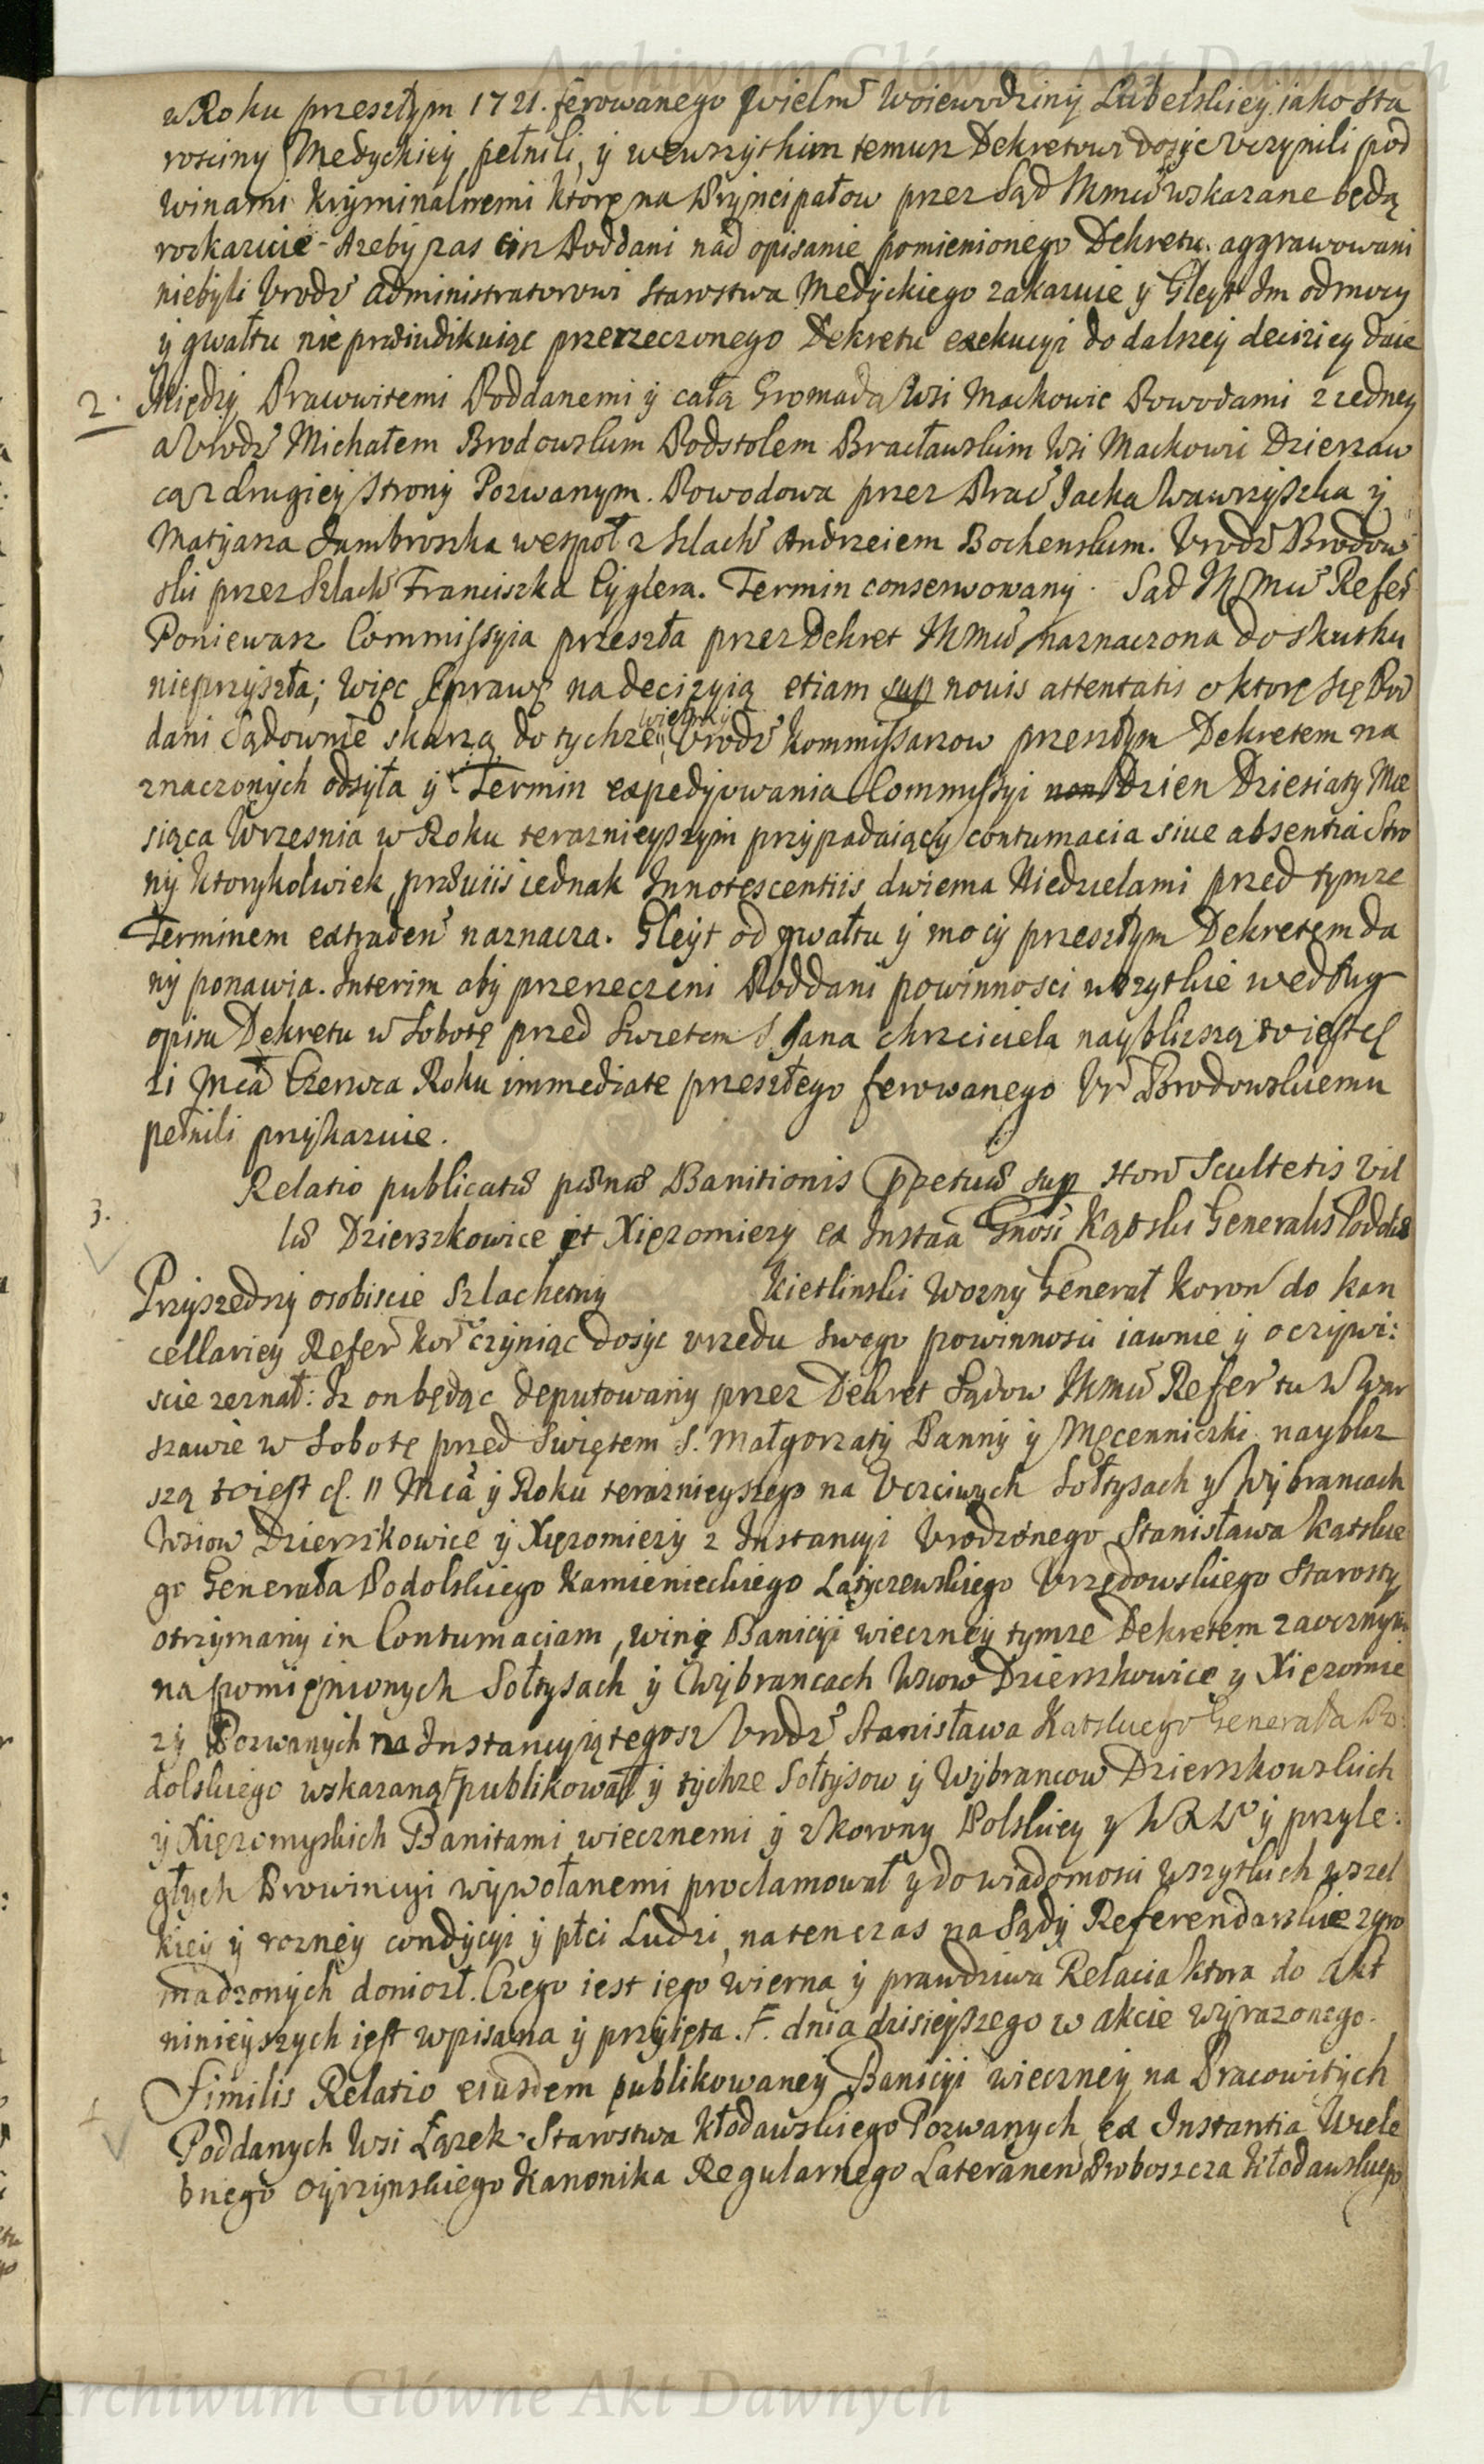 Archiwum Główne Akt Dawnych
w Roku przeszłym 1721. ferowanego Wielm Woiewodziny Lubelskiey iako Sta
rosciny Medyckiey pełnili, y wewszytkim temusz Dekretowi dosyc vczynili pod
winami kryminalnemi ktore na Pryncipałow przez Sąd JKmci wskazane będą
roskazuie - Azeby zas ciz Poddani nad opisanie pomienionego Dekretu aggrawowani
niebyli Vrodz Administratorowi Starostwa Medyckiego zakazuie y Gleyt Im od mocy
y gwałtu nie praeiudikuiąc przerzeczonego Dekretu exekucyi do dalszey deciziey daie
2. Między Pracowitemi Poddanemi y całą Gromadą Wsi Mackowic Powodami z iedney
a Vrodz Michałem Brodowskim Podstolem Bracławskim Wsi Mackowic Dzierzaw
cą z drugiey strony Pozwanym. Powodowa przez Prac Jacka Wawrzyszka y
Matyasza Jambroszka wespoł z Szlach Andrzeiem Bochenskim. Vrodz Brodow
ski przez Szlach Franciszka Cyglera. Termin conserwowany. Sąd JKmci Refer
Poniewasz Commissyia przeszła przez Dekret JKmci naznaczona do skutku
nieprzyszła; więc Sprawę na decizyią etiam sup novis attentatis o ktore się Pod
dani Sądownie skarzą do tychze Wielmy Vrodz Kommissarzow przeszłym Dekretem na
znaczonych odsyła y Termin expedyowania Commissyi Dzien Dziesiąty Mie
siąca Wrzesnia w Roku teraznieyszym przypadaiący contumacia siue absentia Stro
ny ktorykolwiek, praeuiis iednak Innotescentiis dwiema Niedzielami przed tymze
Terminem extraden naznacza. Gleyt od gwałtu y mocy przeszłym Dekretem da
ny ponawia. Interim aby przerzeczeni Poddani powinnosci wszytkie według
opisu Dekretu w Sobotę przed Swietem S Jana chrzciciela naybliszszą to iest d
21 Mca Czerwca Roku immediate przeszłego ferowanego Vr Brodowskiemu
pełnili przykazuie.
3. Relatio publicatae paenae Banitionis Ppetuae sup Hon Scultetis vil
lae Dzierzkowice et Xięzomierz ex Insta Gnosi Kątski Generalis Podoliae
Przyszedszy osobiscie Szlachetny Kietlinski Wozny Generał Koron do kan
cellariey Refer Kor czyniąc dosyc vrzędu swego powinnosci iawnie y oczywi:
scie zeznał: Iz on będąc deputowany przez Dekret Sądow JKmci Refer tu w War
szawie w Sobotę przed Swiętem S. Małgorzaty Panny y Męcenniczki naybliz
szą to iest d. 11 Mca y Roku teraznieyszego na Vczciwych Sołtysach y Wybrancach
Wsiow Dzierzkowice y Xięzomierzy z Instancyi Vrodzonego Stanisława Kątskie
go Generała Podolskiego Kamienieckiego Latyczewskiego Vrzędowskiego Starosty
otrzymany in Contumaciam, winę Banicyi wieczney tymze Dekretem zaocznym
na pomienionych Sołtysach y Wybrancach Wsiow Dzierzkowice y Xięzomie
rzy Pozwanych na Instancyią tegosz Vrodz Stanisława Kątskiego Generała Po:
dolskiego wskazaną publikował y tychze Sołtysow y Wybrancow Dzierzkowskich
y Xięzomyskich Banitami wiecznemi y z Korony Polskiey y W X L y przyle:
głych Prowincyi wywołanemi proclamował y do wiadomosci wszytkich wszel
kiey y rozney condycyi y płci Ludzi, natenczas na Sądy Referendarskie zgro
madzonych doniosł. Czego iest iego wierna y prawdziwa Relacia ktora do Akt
ninieyszych iest wpisana y przyięta. F. dnia dzisieyszego w akcie wyrazonego.
Similis Relatio eiusdem publikowaney Banicyi wieczney na Pracowitych
Poddanych Wsi Łązek Starostwa Kłodawskiego Pozwanych ex Instantia Wiele
bnego Oyrzynskiego Kanonika Regularnego Lateranen Proboszcza Kłodawskiego
Archiwum Główne Akt Dawnych